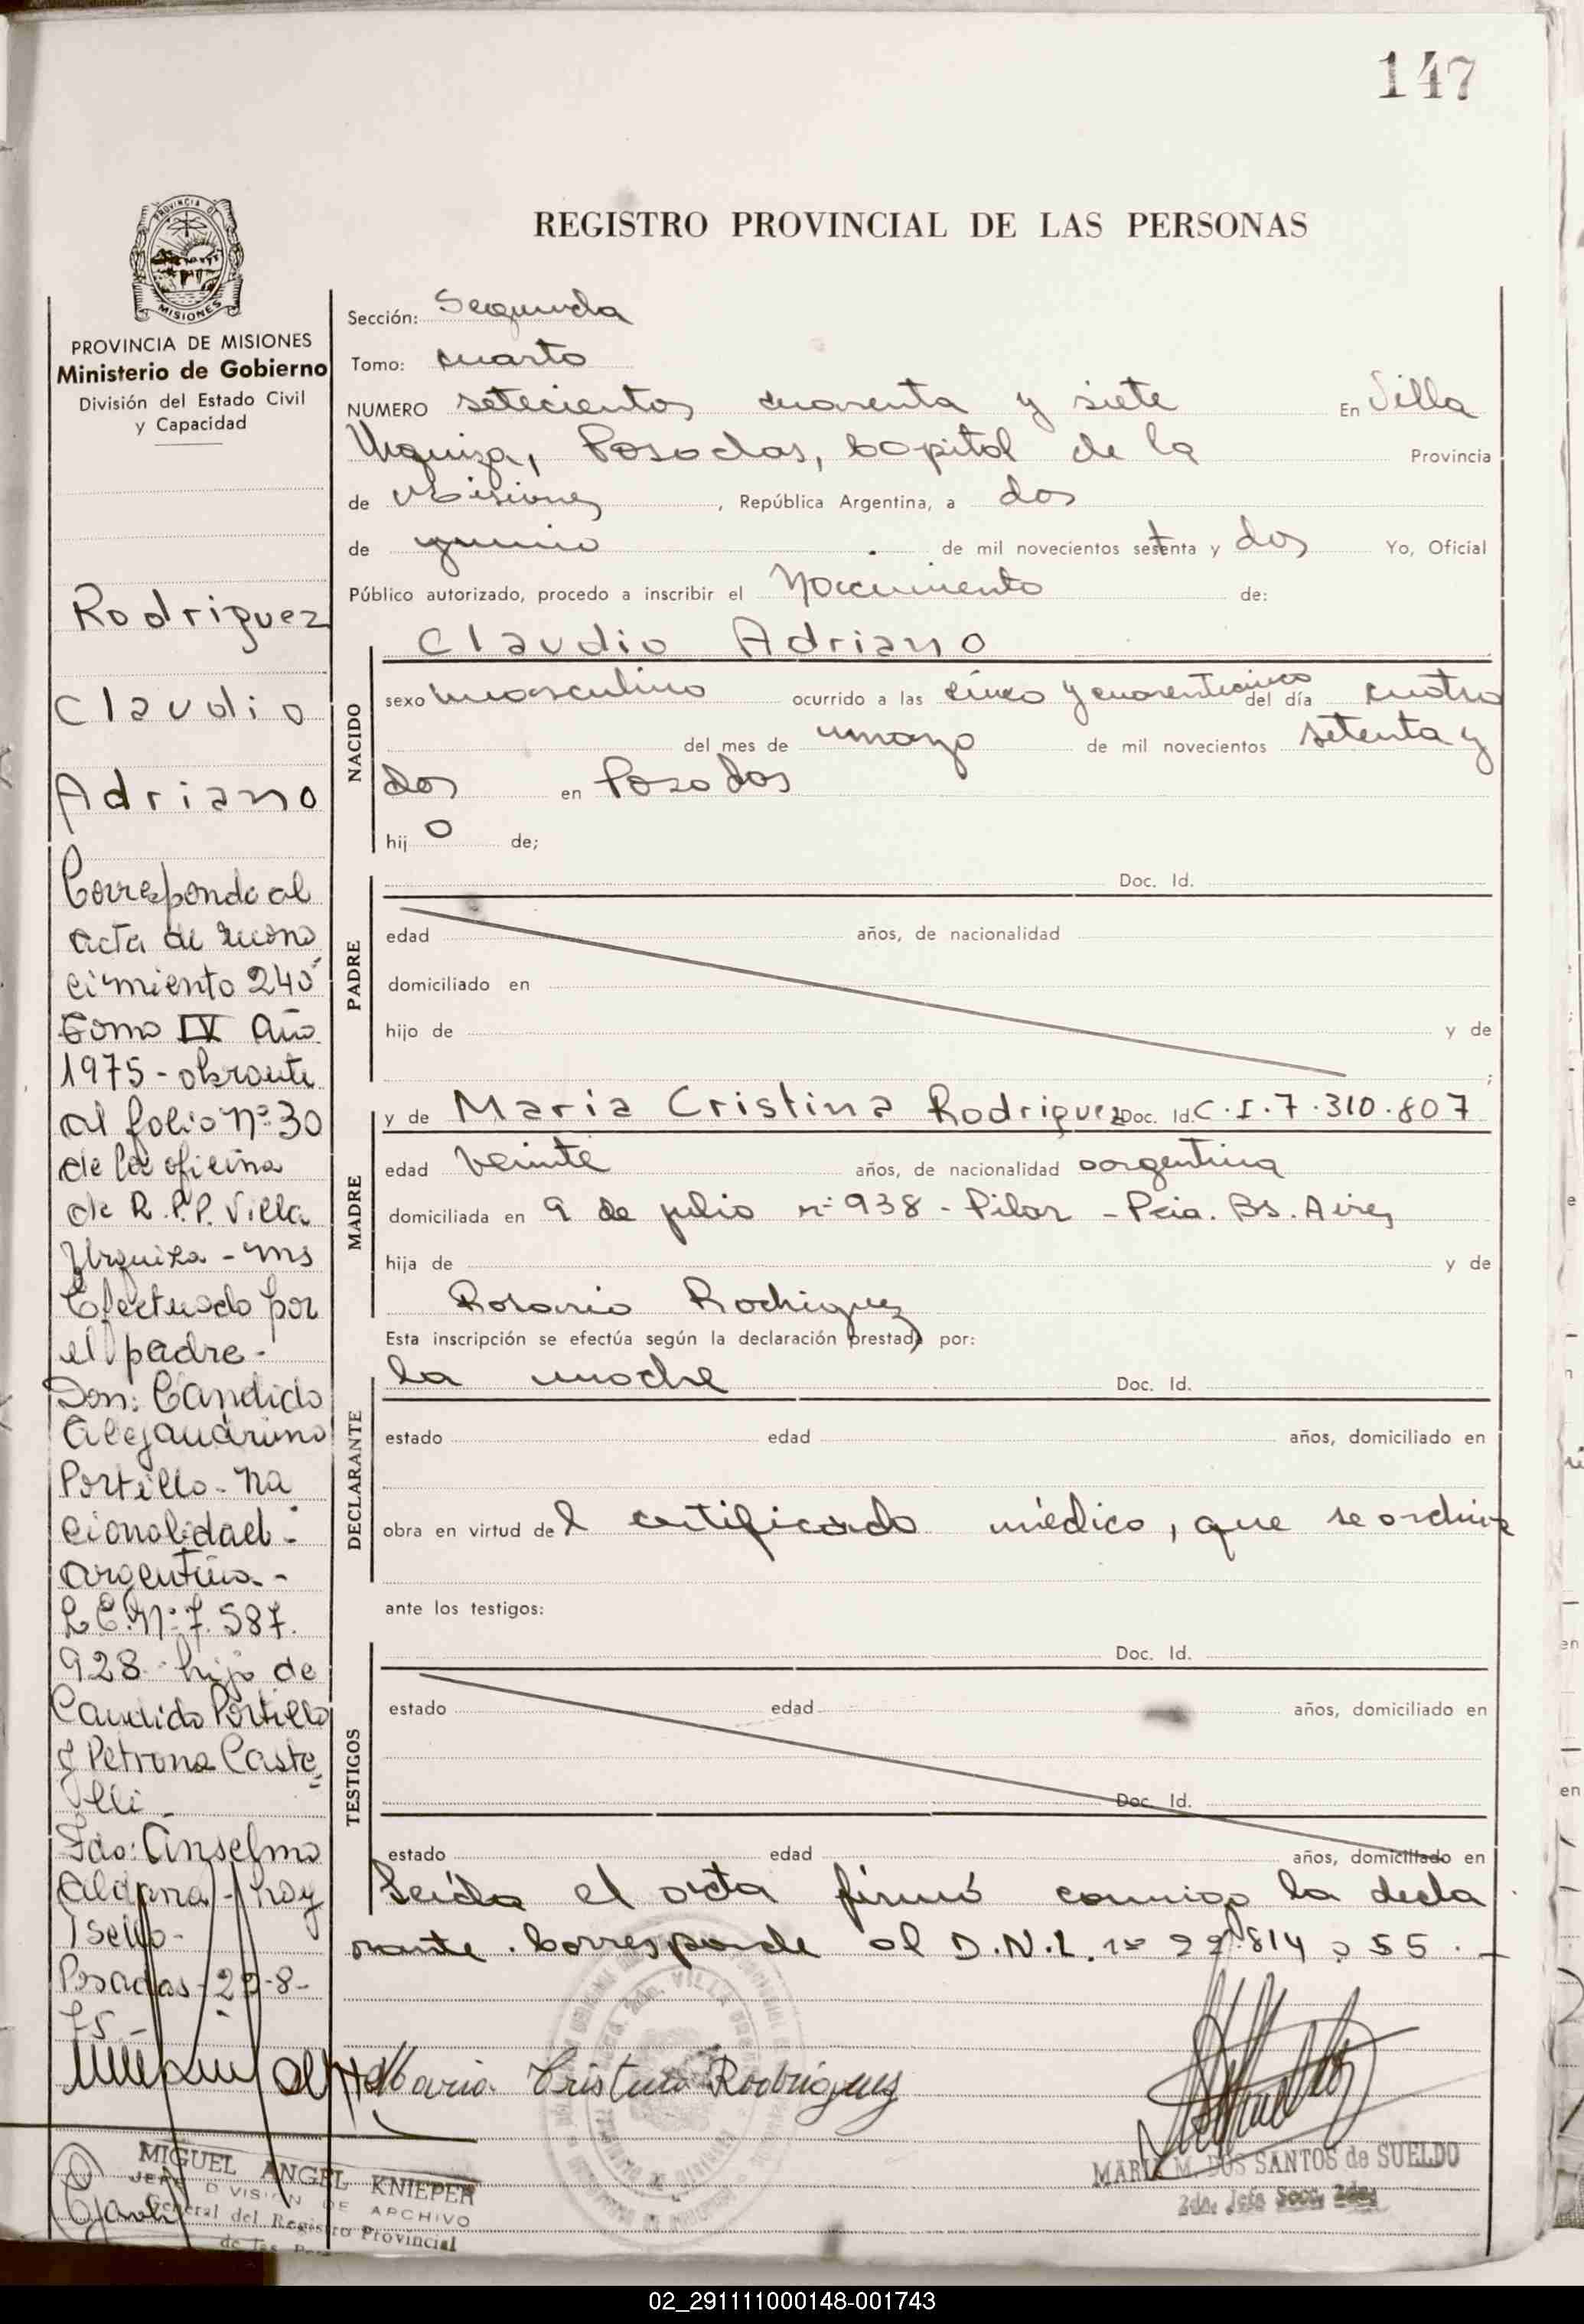 147
REGISTRO PROVINCIAL DE LAS PERSONAS
PROVINCIA DE MISIONES
Ministerio de Gobierno
División del Estado Civil
y Capacidad
Rodriguez
Claudio
Adriano
Corresponde al
acta de recono
cimiento 240
Tomo IV Año
1975 - obrante
al folio Nº 30
de la oficina
de R.P.P. Villa
Urquiza - Ms
Efectuado por
el padre -
Don: Candido
Alejandrino
Portillo - na
cionalidad -
argentina -
L.E. Nº 7.587.
928 - hijo de
Candido Portillo
y Petrona Caste
lli -
Fdo: Anselmo
Aldana - hay
1 sello -
Posadas - 29-8-
75 -
MIGUEL ANGEL KNIEPER
JEFE DIVISION DE ARCHIVO
General del Registro Provincial
de las
Sección: Segunda
Tomo: cuarto
NUMERO setecientos cuarenta y siete En Villa
Urquiza, Posadas, Capital de la Provincia
de Misiones, República Argentina, a dos
de junio de mil novecientos setenta y dos Yo, Oficial
Público autorizado, procedo a inscribir el Nacimiento de:
Claudio Adriano
NACIDO
sexo masculino ocurrido a las cinco y cuarenticinco del día cuatro
del mes de mayo de mil novecientos setenta y
dos en Posadas
hijo de;
PADRE
Doc. Id.
edad años, de nacionalidad
domiciliado en
hijo de y de
;
MADRE
y de Maria Cristina Rodriguez Doc. Id. C.I.7.310.807
edad veinte años, de nacionalidad argentina
domiciliada en 9 de julio nº 938 - Pilar - Pcia. Bs. Aires
hija de y de
Rosario Rodriguez
Esta inscripción se efectúa según la declaración prestada por:
DECLARANTE
la madre Doc. Id.
estado edad años, domiciliado en
obra en virtud del certificado médico, que se archiva
ante los testigos:
TESTIGOS
Doc. Id.
estado edad años, domiciliado en
Doc. Id.
estado edad años, domiciliado en
Leída el acta firmó conmigo la decla
rante. Corresponde al D.N.I. nº
Maria Cristina Rodriguez
MARIA M. DOS SANTOS de SUELDO
2da. Jefa Secc. 2da.
02_291111000148-001743